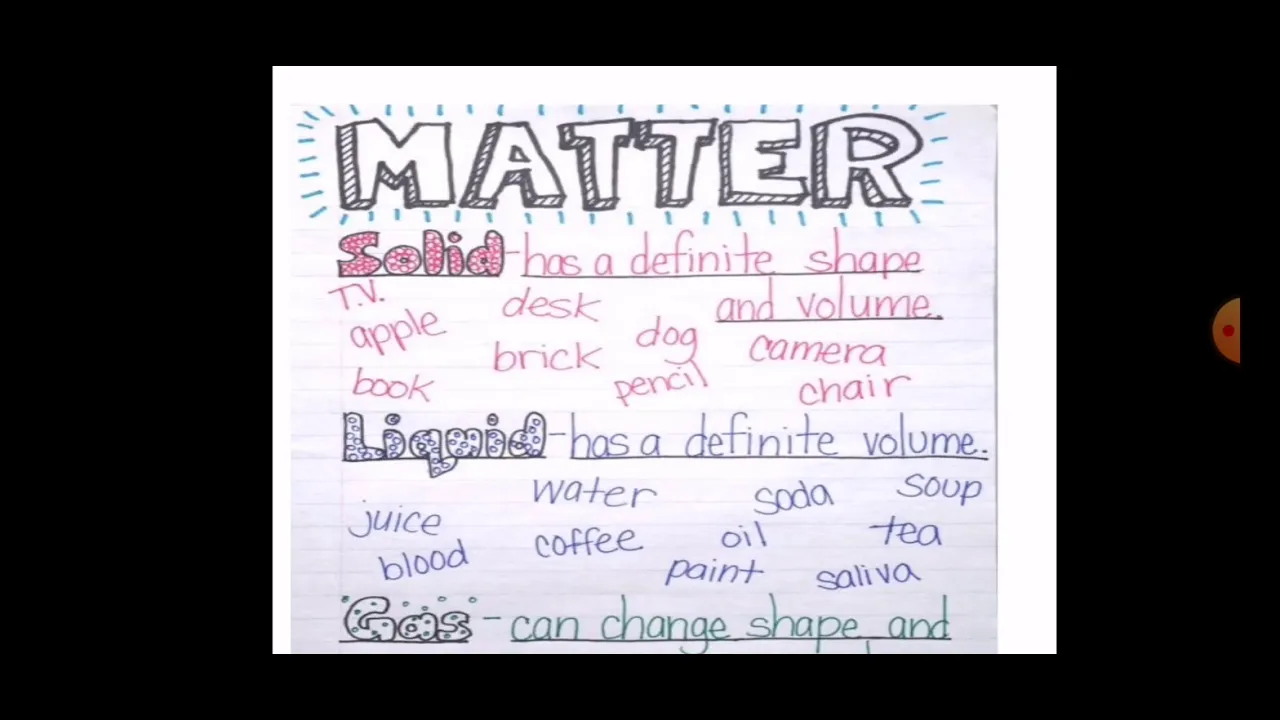 MATTER
Solid - has a definite shape
and volume.
T.V.
apple desk dog camera
book brick pencil chair
Liquid - has a definite volume.
juice water soda soup
blood coffee oil tea
paint saliva
Gas - can change shape and